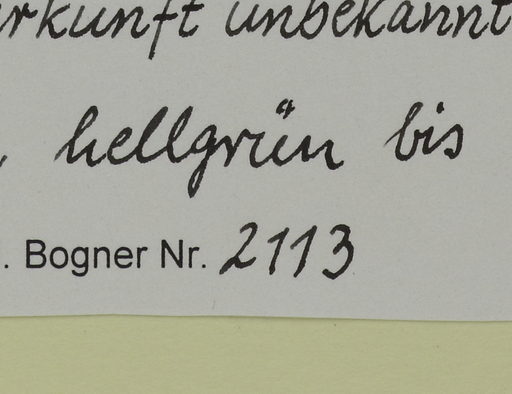 rkunft unbekannt
, hellgrün bis
. Bogner Nr. 2113